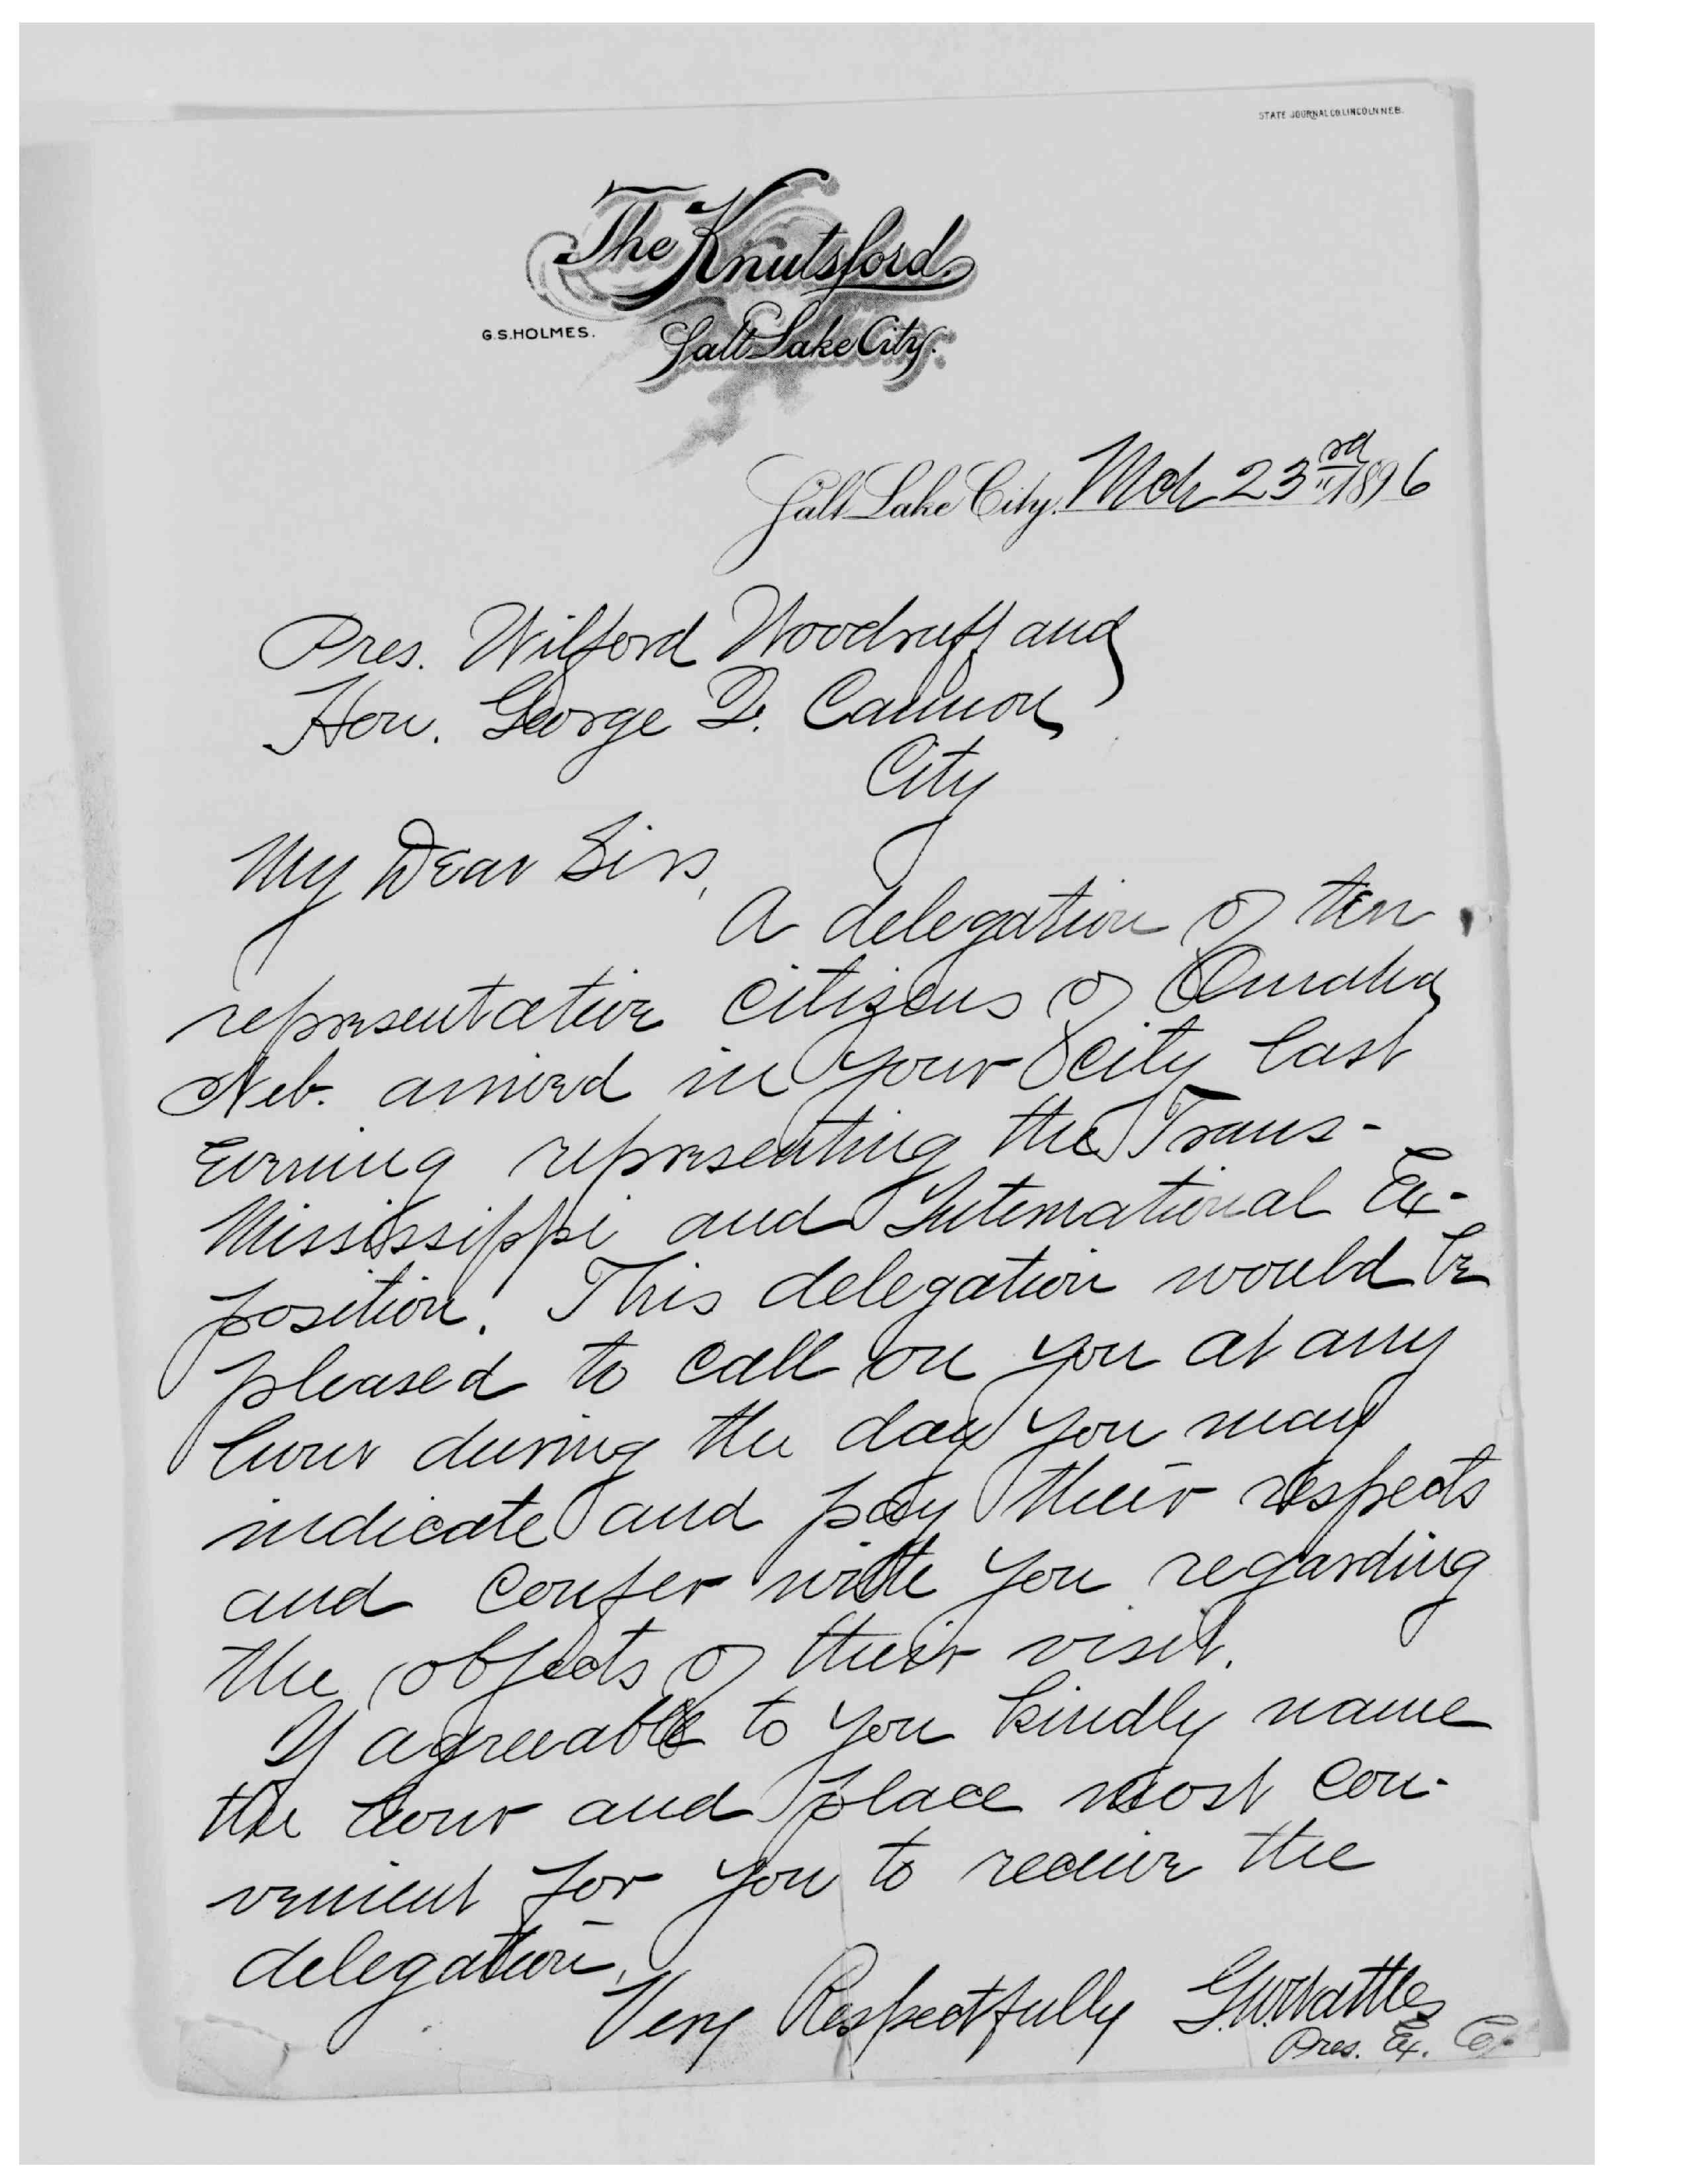 STATE JOURNAL CO. LINCOLN NEB.
The Knutsford
G.S. HOLMES.
Salt Lake City.
Salt Lake City. Mch 23rd 1896
Pres. Wilford Woodruff and
Hon. George Q. Cannon
City
My Dear Sirs,
A delegation of ten
representative citizens of Omaha
Neb. arrived in your City last
Evening representing the Trans-
Mississippi and International Ex-
position. This delegation would be
pleased to call on you at any
hour during the day you may
indicate and pay their respects
and confer with you regarding
the objects of their visit.
If agreeable to you kindly name
the hour and place most con-
venient for you to receive the
delegation.
Very Respectfully G.W. Wattles
Pres. Ex. Co.